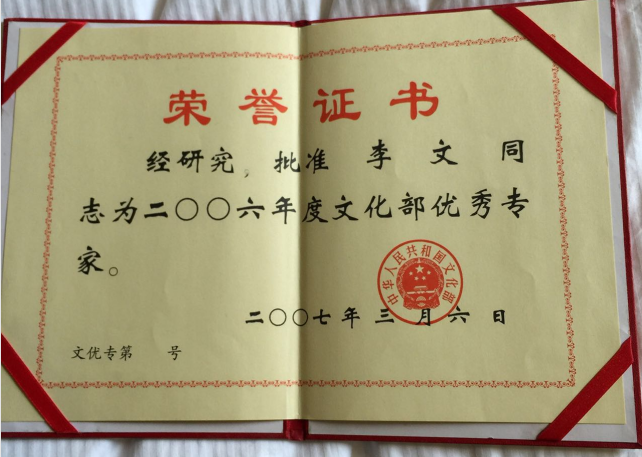 荣誉证书
经研究,批准 李文同
志为二〇〇六年度文化部优秀专
家。
中华人民共和国文化部
二〇〇七年三月六日
文优专第 号